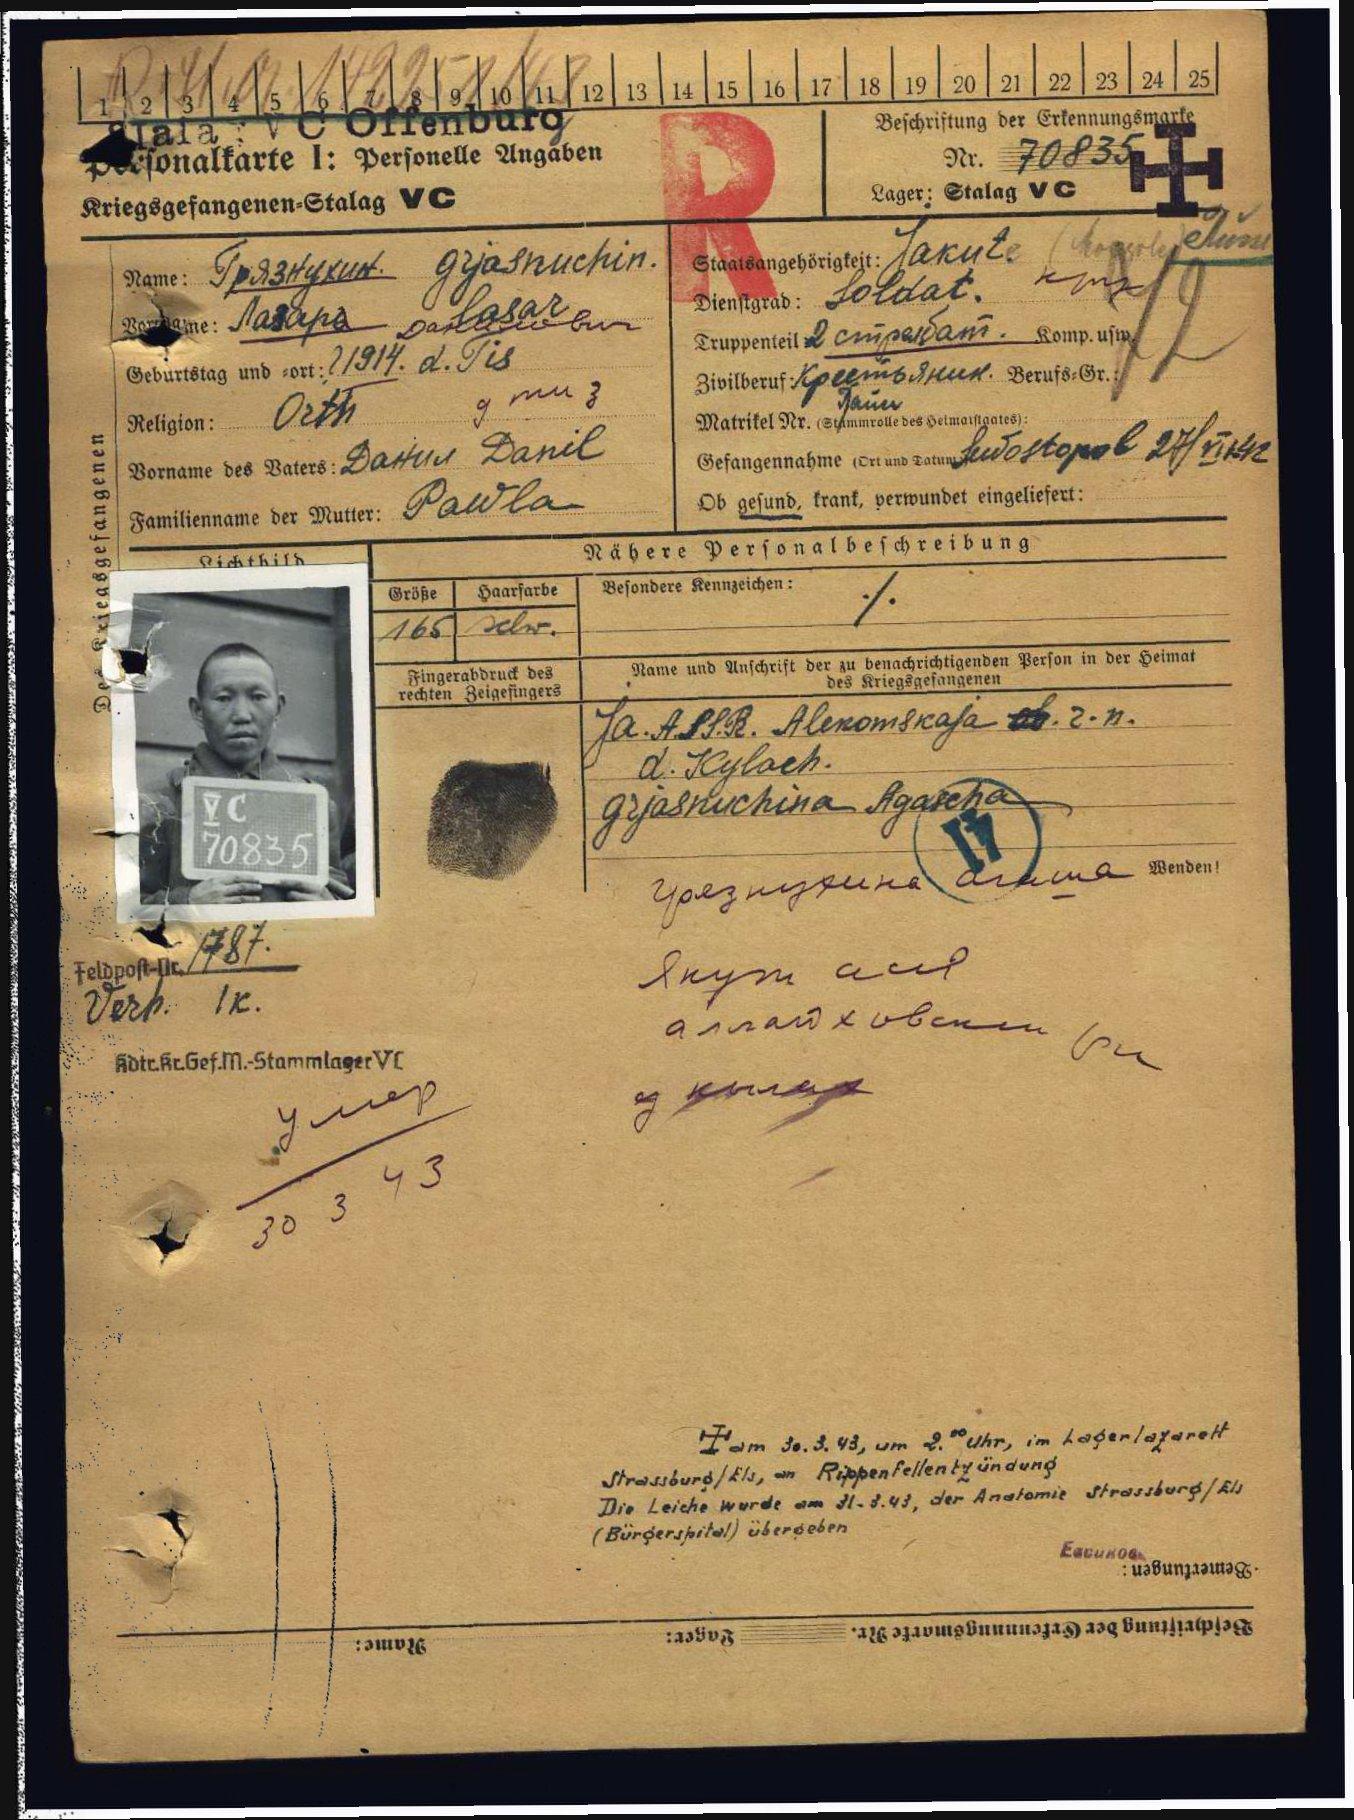 1 2 3 4 5 6 7 8 9 10 11 12 13 14 15 16 17 18 19 20 21 22 23 24 25
V C Offenburg
Personalkarte I: Personelle Angaben
Kriegsgefangenen-Stalag VC
R
Beschriftung der Erkennungsmarke
Nr. 70835
Lager: Stalag VC
Des Kriegsgefangenen
Name: Грязнухин. Grjasnuchin.
Vorname: Лазарь Lasar
Данилович
Geburtstag und -ort: 1914. d. Tis
д тиз
Religion: Orth
Vorname des Vaters: Данил Danil
Familienname der Mutter: Pawla
Staatsangehörigkeit: Jakute
Dienstgrad: Soldat.
Truppenteil 2 стр. бат. Komp. usw.
Zivilberuf: Крестьянин. Berufs-Gr.:
Bauer
Matrikel Nr. (Stammrolle des Heimatstaates):
Gefangennahme (Ort und Datum) 27/VI 1942
Ob gesund, krank, verwundet eingeliefert:
Lichtbild
Nähere Personalbeschreibung
Größe Haarfarbe Besondere Kennzeichen: ./.
165 schw.
Fingerabdruck des
rechten Zeigefingers
Name und Anschrift der zu benachrichtigenden Person in der Heimat
des Kriegsgefangenen
Ja. A.S.S.R. Alekomskaja ob. r. n.
d. Kylach.
Grjasnuchina Agascha
41
V C
70835
Wenden!
Грязнухина Агаша
Якут асср
аллайховский
д кылах
Feldpost-Nr. 1787.
Verp. 1k.
Kdtr.Kr.Gef.M.-Stammlager VC
Умер
30 3 43
am 30.3.43, um 2.00 Uhr, im Lagerlazarett
Strassburg/Els, an Rippenfellentzündung
Die Leiche wurde am 31.3.43, der Anatomie Strassburg/Els
(Bürgerspital) übergeben
Евсиков
Bemerkungen:
Beschriftung der Erkennungsmarke Nr. Lager: Name: